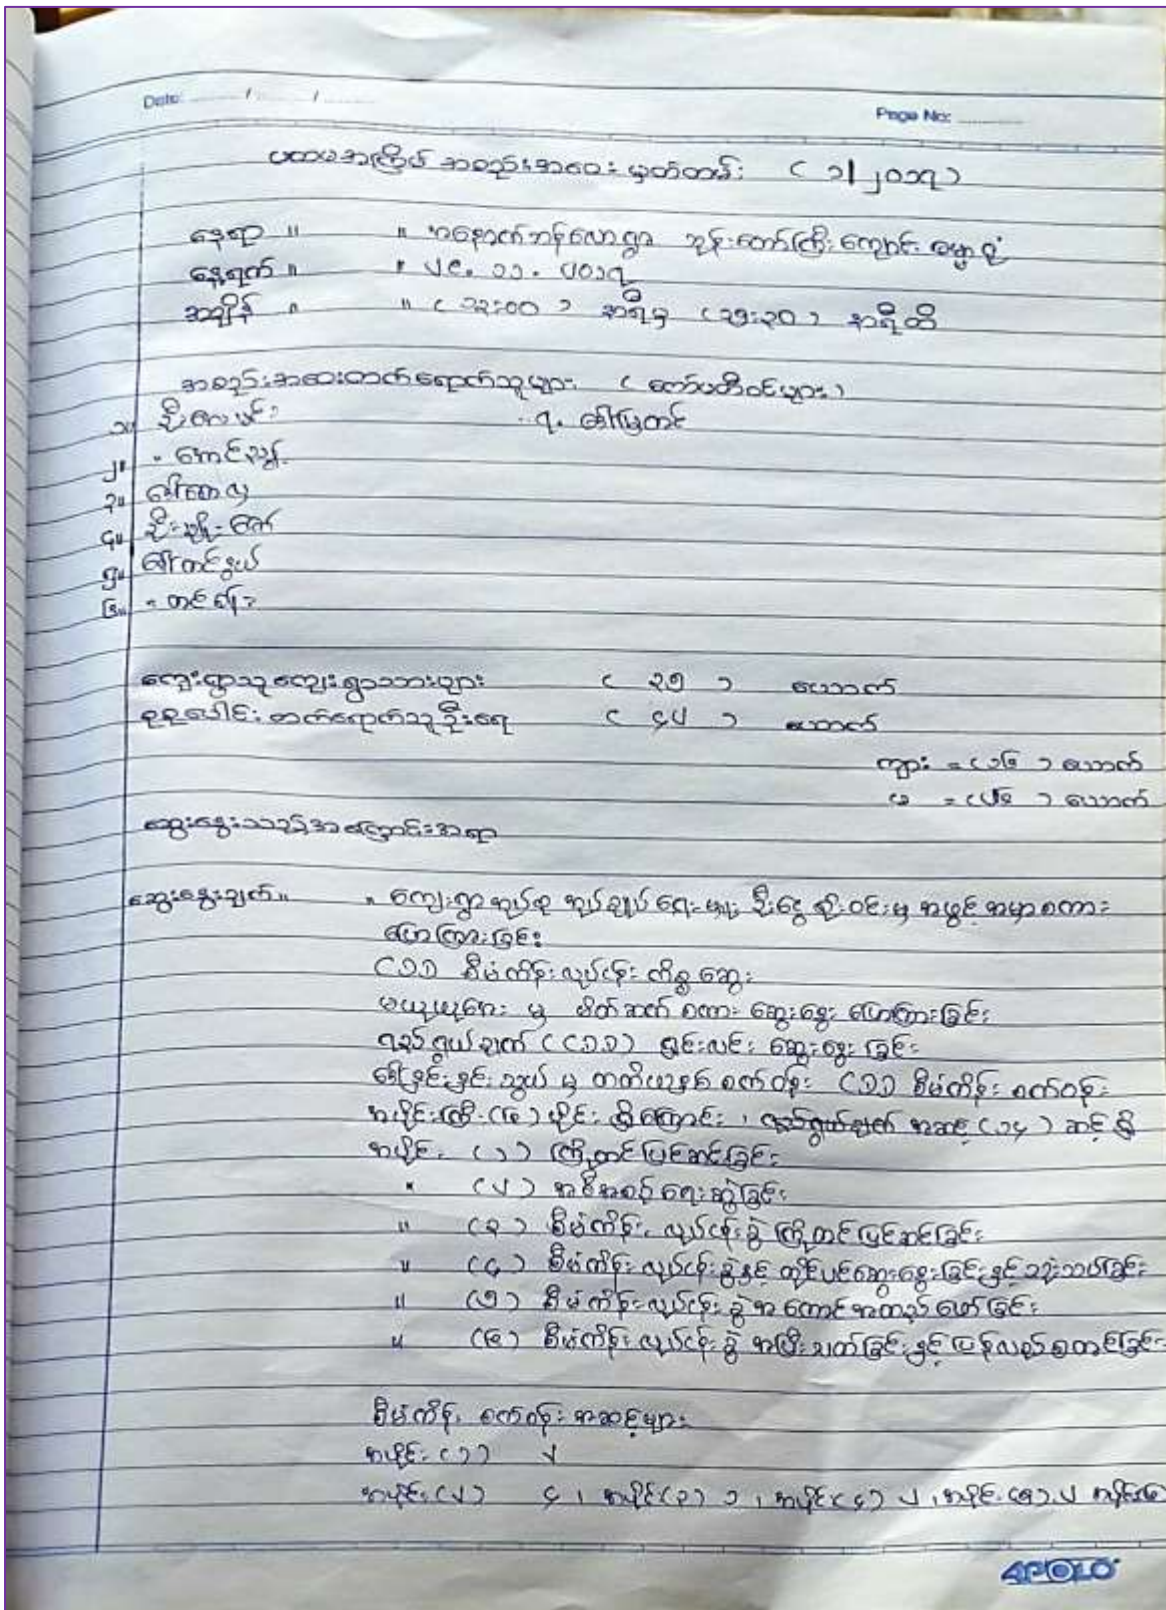 Date: ......... / ......... / .........
Page No: ............
ပထမအကြိမ် အစည်းအဝေး မှတ်တမ်း ( ၁/၂၀၁၇ )
နေရာ ။ ။ အနောက်ဘန်လောရွာ ဘုန်းတော်ကြီးကျောင်း ဓမ္မာရုံ
နေ့ရက် ။ ။ ၂၉. ၁၁. ၂၀၁၇
အချိန် ။ ။ ( ၁၃:၀၀ ) နာရီမှ ( ၁၅:၃၀ ) နာရီထိ
အစည်းအဝေးတက်ရောက်သူများ ( ကော်မတီဝင်များ )
၁။ ဦးလေးမင်း ၇. ဒေါ်မြတင်
၂။ " အောင်ညွန့်
၃။ ဒေါ်စောလှ
၄။ ဦးချိုဇော်
၅။ ဒေါ်တင်နွယ်
၆။ " တင်စိုး
ကျေးရွာသူကျေးရွာသားများ ( ၃၅ ) ယောက်
စုစုပေါင်း တက်ရောက်သူဦးရေ ( ၄၂ ) ယောက်
ကျား = ( ၁၆ ) ယောက်
မ = ( ၂၆ ) ယောက်
ဆွေးနွေးသည့်အကြောင်းအရာ
ဆွေးနွေးချက် ။ ။ ကျေးရွာအုပ်စု အုပ်ချုပ်ရေးမှူး ဦးငွေစိုးဝင်းမှ အဖွင့် အမှာစကား
ပြောကြားခြင်း
CDD စီမံကိန်းလုပ်ငန်း ကိစ္စဆွေး
မယုယုဇော မှ မိတ်ဆက် စကား ဆွေးနွေး ပြောကြားခြင်း
ရည်ရွယ်ချက် (CDD) ရှင်းလင်း ဆွေးနွေးခြင်း
ဒေါ်နှင်းနှင်းသွယ် မှ တတိယနှစ် စက်ဝန်း CDD စီမံကိန်း စက်ဝန်း
အပိုင်းကြီး (၆) ပိုင်း ရှိကြောင်း ၊ ရည်ရွယ်ချက် အဆင့် (၁၄) ဆင့် ရှိ
အပိုင်း (၁) ကြိုတင်ပြင်ဆင်ခြင်း
" (၂) အစီအစဉ် ရေးဆွဲခြင်း
" (၃) စီမံကိန်း လုပ်ငန်းခွဲ ကြိုတင်ပြင်ဆင်ခြင်း
" (၄) စီမံကိန်း လုပ်ငန်းခွဲနှင့် တိုင်ပင်ဆွေးနွေးခြင်းနှင့် သုံးသပ်ခြင်း
" (၅) စီမံကိန်းလုပ်ငန်းခွဲ အကောင်အထည်ဖော်ခြင်း
" (၆) စီမံကိန်းလုပ်ငန်းခွဲ အပြီးသတ်ခြင်းနှင့် ပြန်လည်စတင်ခြင်း
စီမံကိန်း စက်ဝန်း အဆင့်များ
အပိုင်း (၁) ၂
အပိုင်း (၂) ၄ ၊ အပိုင်း (၃) ၁ ၊ အပိုင်း (၄) ၂ ၊ အပိုင်း (၅) ၂
APOLO